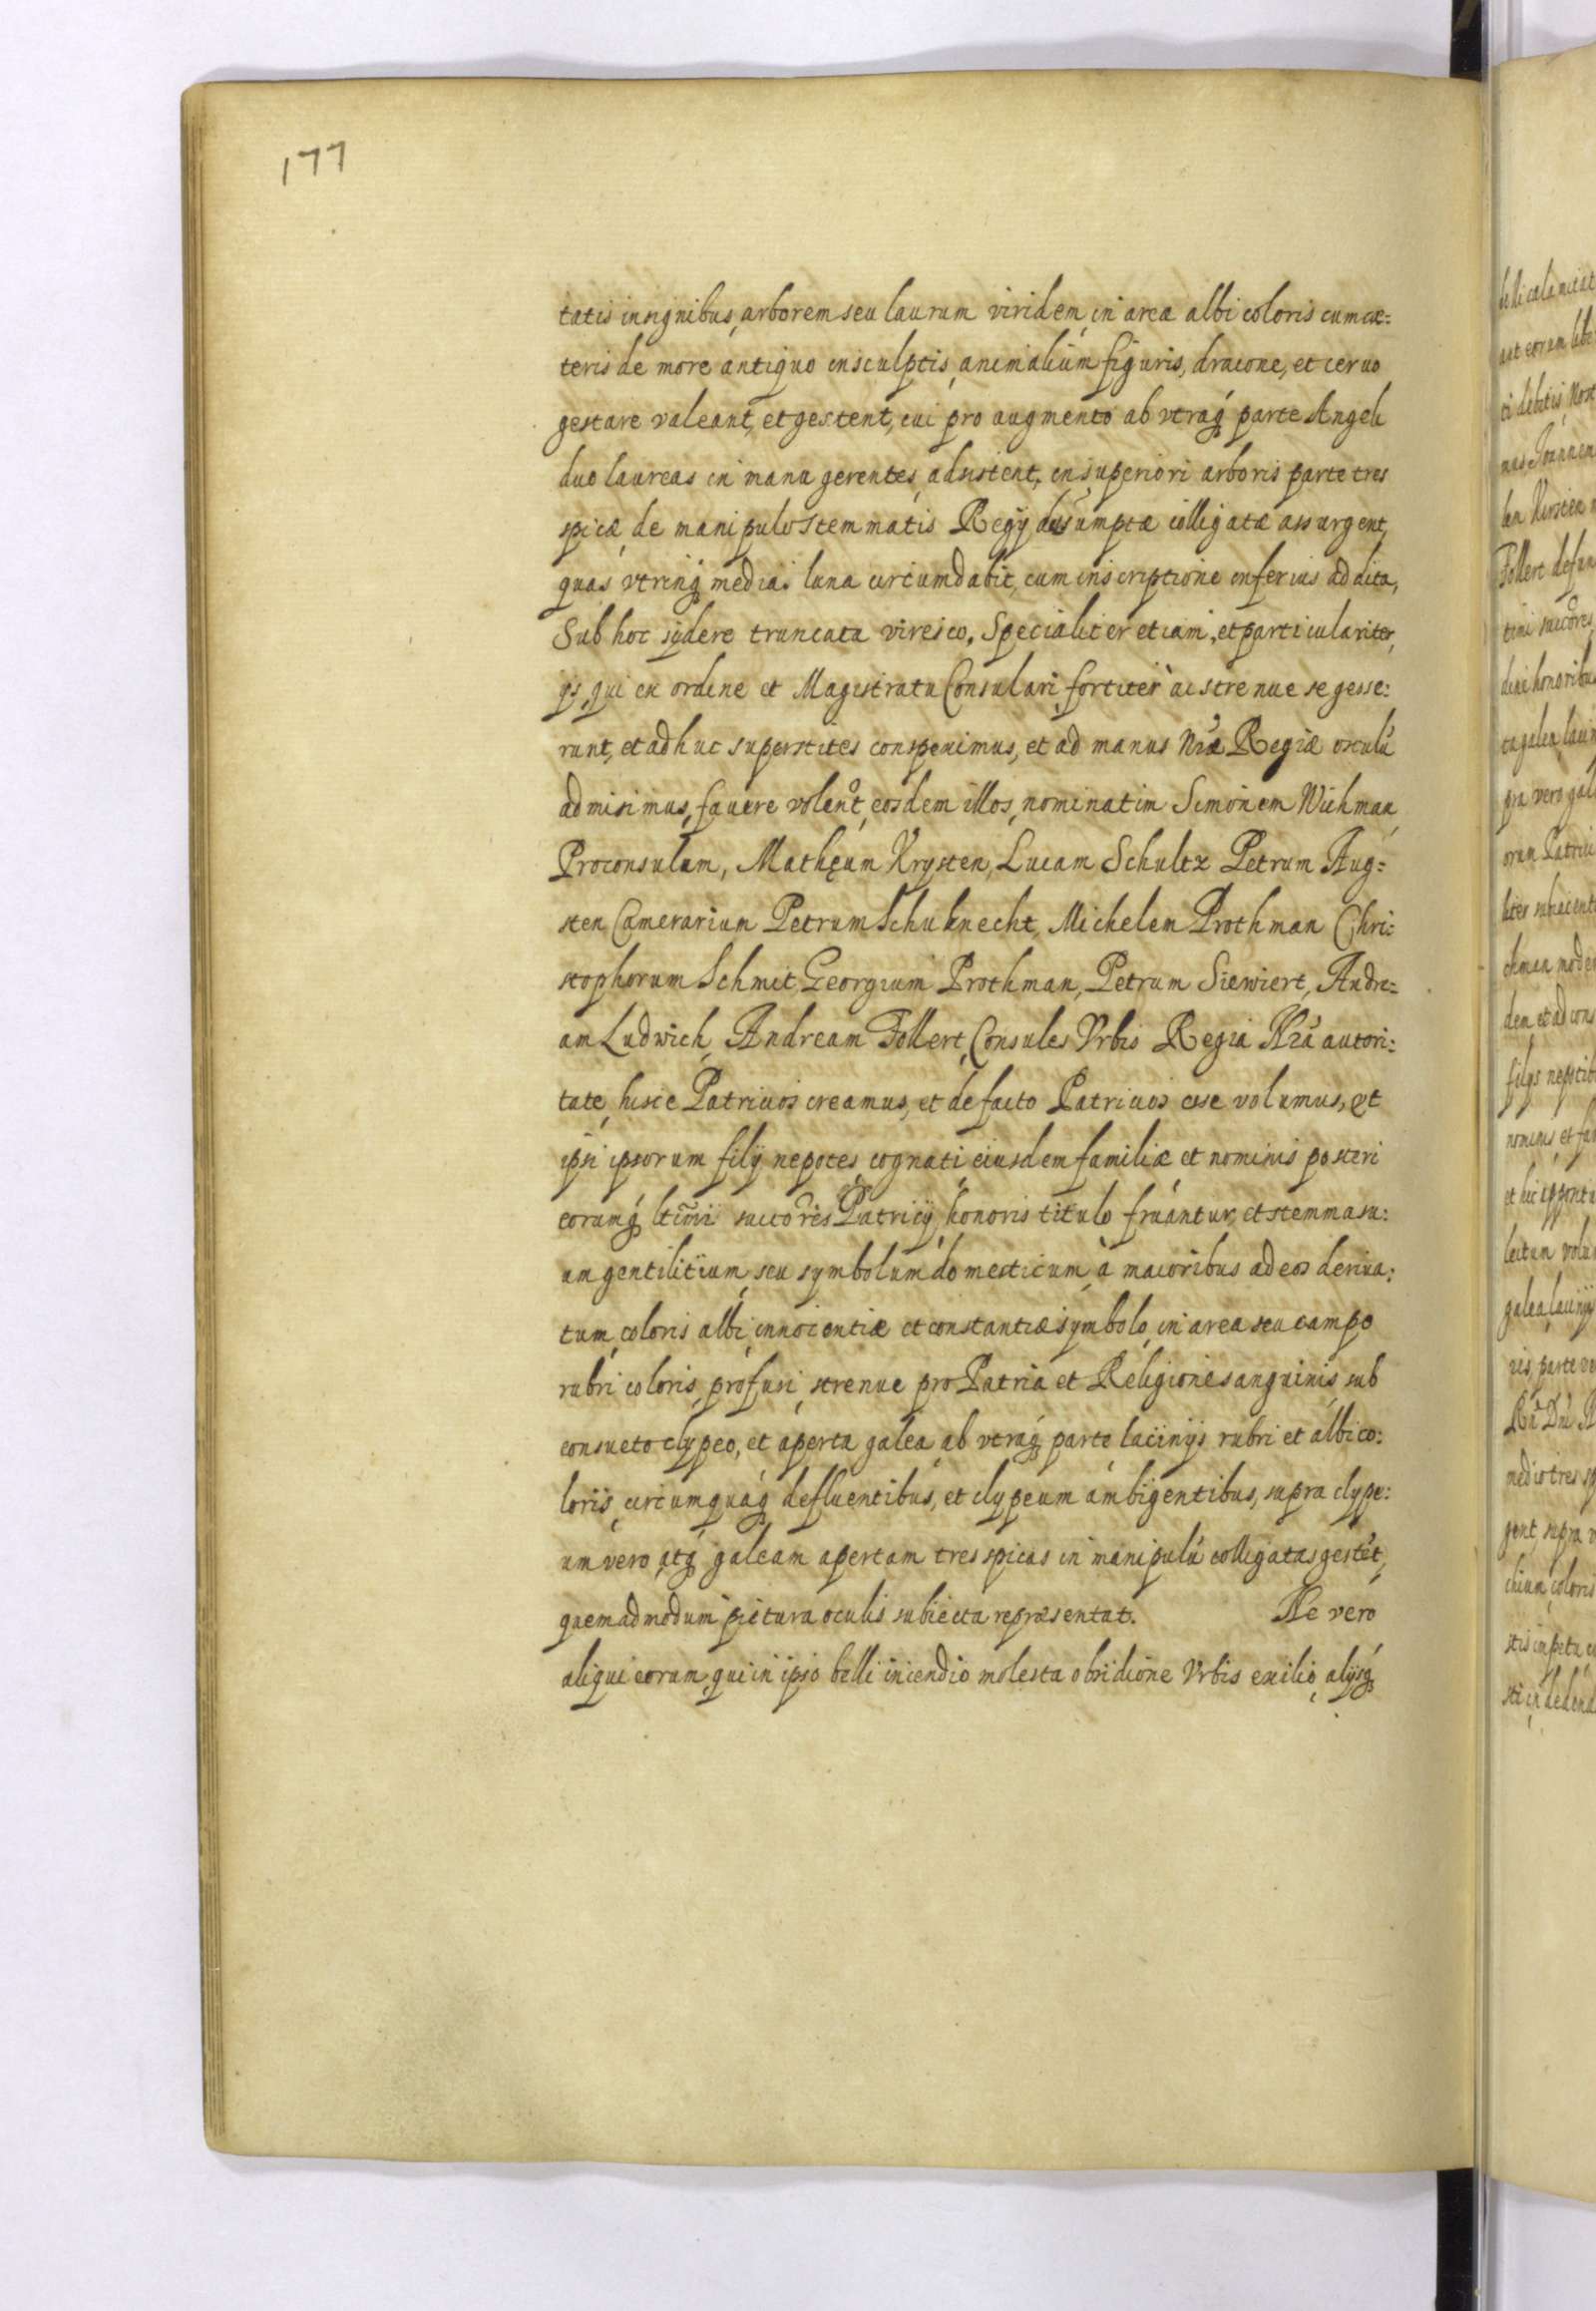 177
tatis insignibus, arborem seu laurum viridem, in area albi coloris cum cæ:
teris de more antiquo insculptis, animalium figuris, dracone, et ceruo
gestare valeant, et gestent, cui pro augmento ab vtraq́ parte Angeli
duo laureas in manu gerentes, adsistent, in superiori arboris parte tres
spicæ, de manipulo Stemmatis Regÿ desumptæ colligatæ assurgent,
quas vtrinq́ media luna circumdabit, cum inscriptione inferius addita,
Sub hoc sydere truncata viresco. Specialiter etiam, et particulariter,
ys, qui ex ordine et Magistratu Consulari, fortiter ac strenue se gesse:
runt, et adhuc superstites conspeximus, et ad manus Nræ Regiæ osculú
admisimus, fauere volent, eosdem illos, nominatim Simonem Wichman,
Proconsulum, Mathęum Krysten, Lucam Schultz Petrum Aug:
sten Camerarium Petrum Schuknecht, Michelem Prothman Chri:
stophorum Schmit, Georgium Prothman, Petrum Siewiert, Andre:
am Ludwich, Andream Follert, Consules Vrbis Regia Nrá autori:
tate, hisce Patricios creamus, et de facto Patricios esse volumus, vt
ipsi ipsorum filÿ nepotes, cognati, eiusdem familiæ et nominis posteri
eorumq́ ltimi succores Patricÿ, honoris titulo fruantur, et stemma su:
um gentilitium, seu symbolum domesticum, à maioribus ad eos deriua:
tum, coloris albi, innocentiæ et constantiæ symbolo, in area seu campo
rubri coloris, profusi, strenue pro Patria et Religione sanguinis, sub
consueto clypeo, et aperta galea, ab vtraq́ parte, lacinÿs rubri et albi co:
loris, circumquaq́ defluentibus, et clypeum ambigentibus, supra clype:
um vero, atq́ galeam apertam tres spicas in manipulú colligatas gestét,
quemadmodum pictura oculis subiecta repræsentat. Ne vero
aliqui eorum, qui in ipso belli incendio molesta obsidione Vrbis exilio, alÿsq́